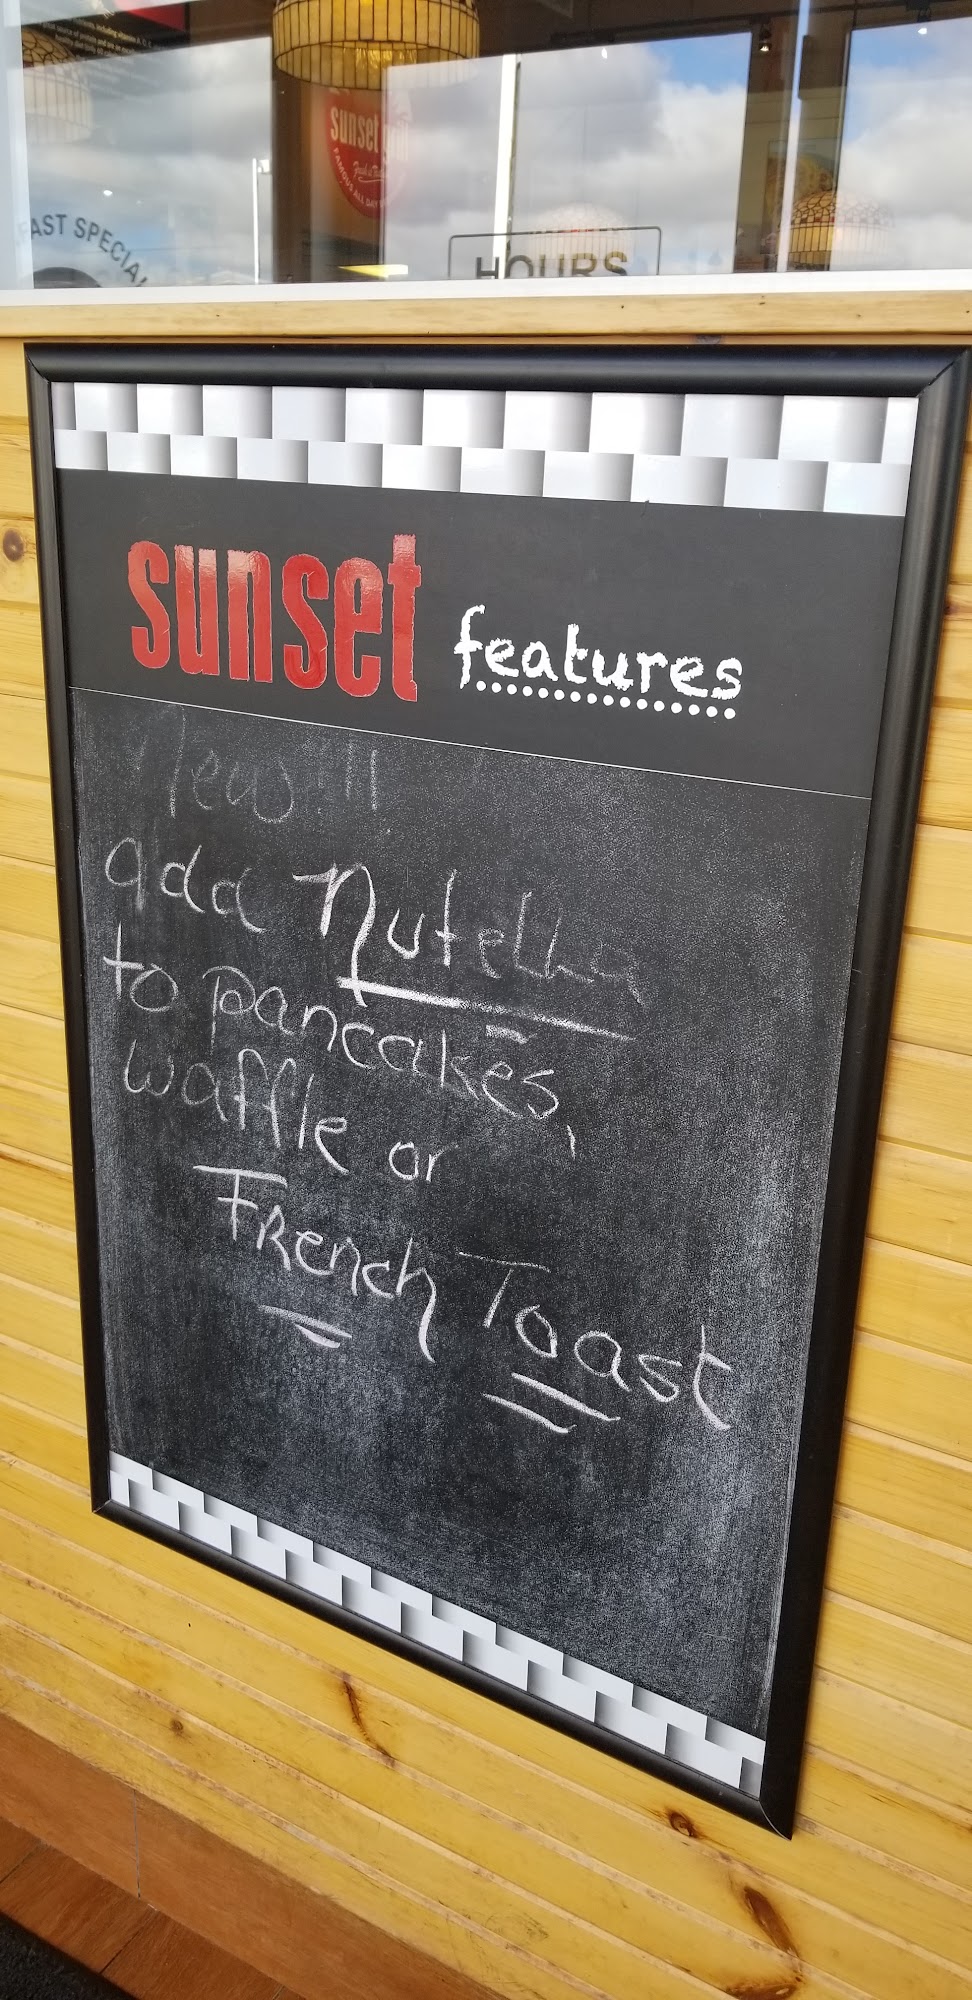 sunset
FAST SPECIAL
HOURS
sunset features
New!!!
add Nutella
to pancakes,
waffle or
FRench Toast